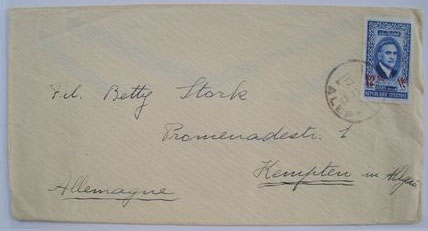 Frl. Betty Stork
Promenadestr. 1
Kempten im Allgäu
Allemagne
ALEP
REPUBLIQUE SYRIENNE